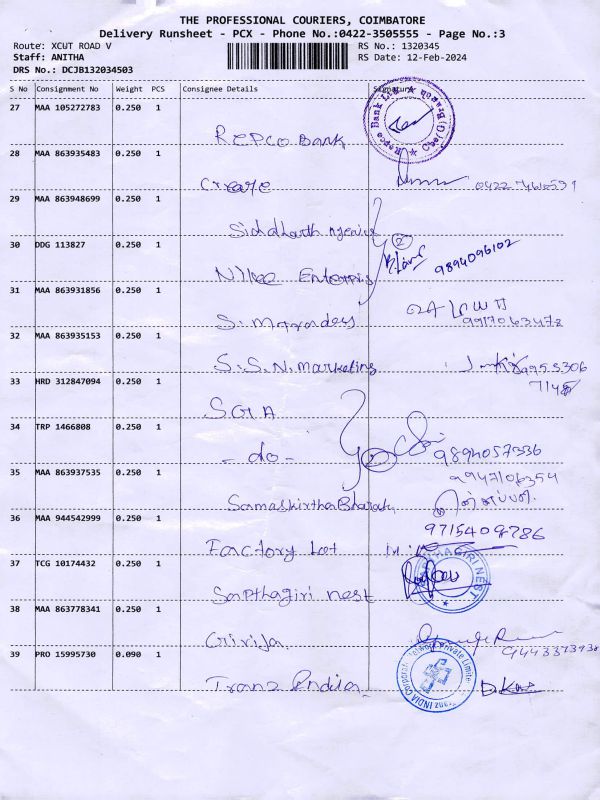 THE PROFESSIONAL COURIERS, COIMBATORE
Delivery Runsheet - PCX - Phone No.:0422-3505555 - Page No.:3
Route: XCUT ROAD V RS No.: 1320345
Staff: ANITHA RS Date: 12-Feb-2024
DRS No.: DCJB132034503
S No Consignment No Weight PCS Consignee Details Signature
27 MAA 105272783 0.250 1
REPCO BANK
28 MAA 863935483 0.250 1
Create
29 MAA 863948699 0.250 1
Siddharth Agencies
30 DDG 113827 0.250 1
9894096102
Enterpris
31 MAA 863931856 0.250 1
9917063478
32 MAA 863935153 0.250 1
S.S.N. marketing
33 HRD 312847094 0.250 1
34 TRP 1466808 0.250 1
- do - 9894057336
35 MAA 863937535 0.250 1
9947106354
Samaskirtha Bharati
36 MAA 944542999 0.250 1
9715408786
Factory Lot
37 TCG 10174432 0.250 1
Sapthagiri nest
38 MAA 863778341 0.250 1
Girija
39 PRO 15995730 0.090 1
Tranz India